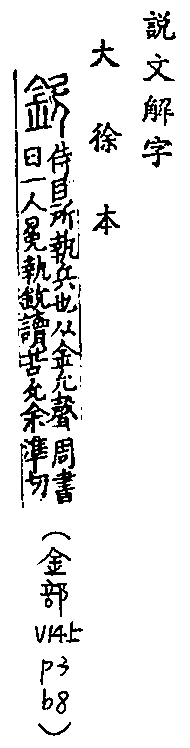 説文解字
大徐本
鈗 侍臣所執兵也从金允聲周書
曰一人冕執鈗讀若允余準切
（金部 V14上 p3 b8）